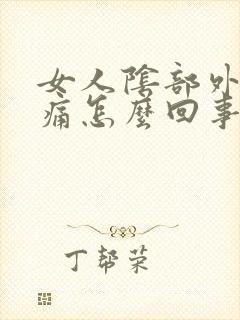 女人陰部外
痛怎麼回事
丁幫榮